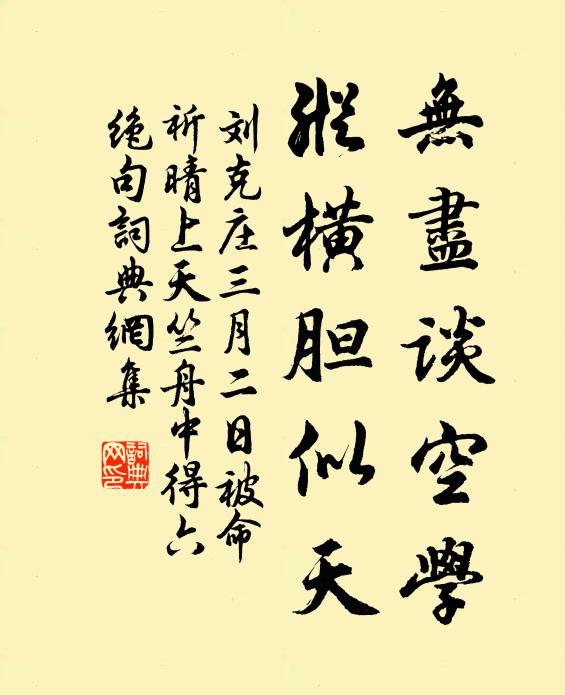 無盡談空學
縱橫胆似天
刘克庄三月二日被命
祈晴上天竺舟中得六
绝句詞典網集
詞典
网印